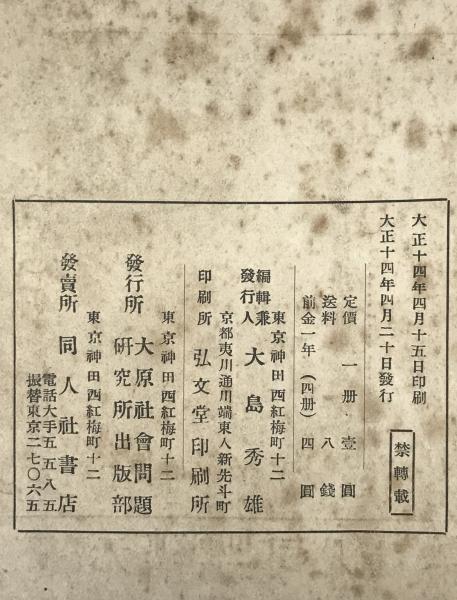 大正十四年四月十五日印刷
大正十四年四月二十日發行
禁轉載
定價 一册・壹圓
送料 八錢
前金一年（四册）四圓
東京神田西紅梅町十二
編輯兼發行人 大島秀雄
京都夷川通川端東入新先斗町
印刷所 弘文堂印刷所
東京神田西紅梅町十二
發行所 大原社會問題研究所出版部
東京神田西紅梅町十二
發賣所 同人社書店
電話大手五五八五
振替東京二七〇六五